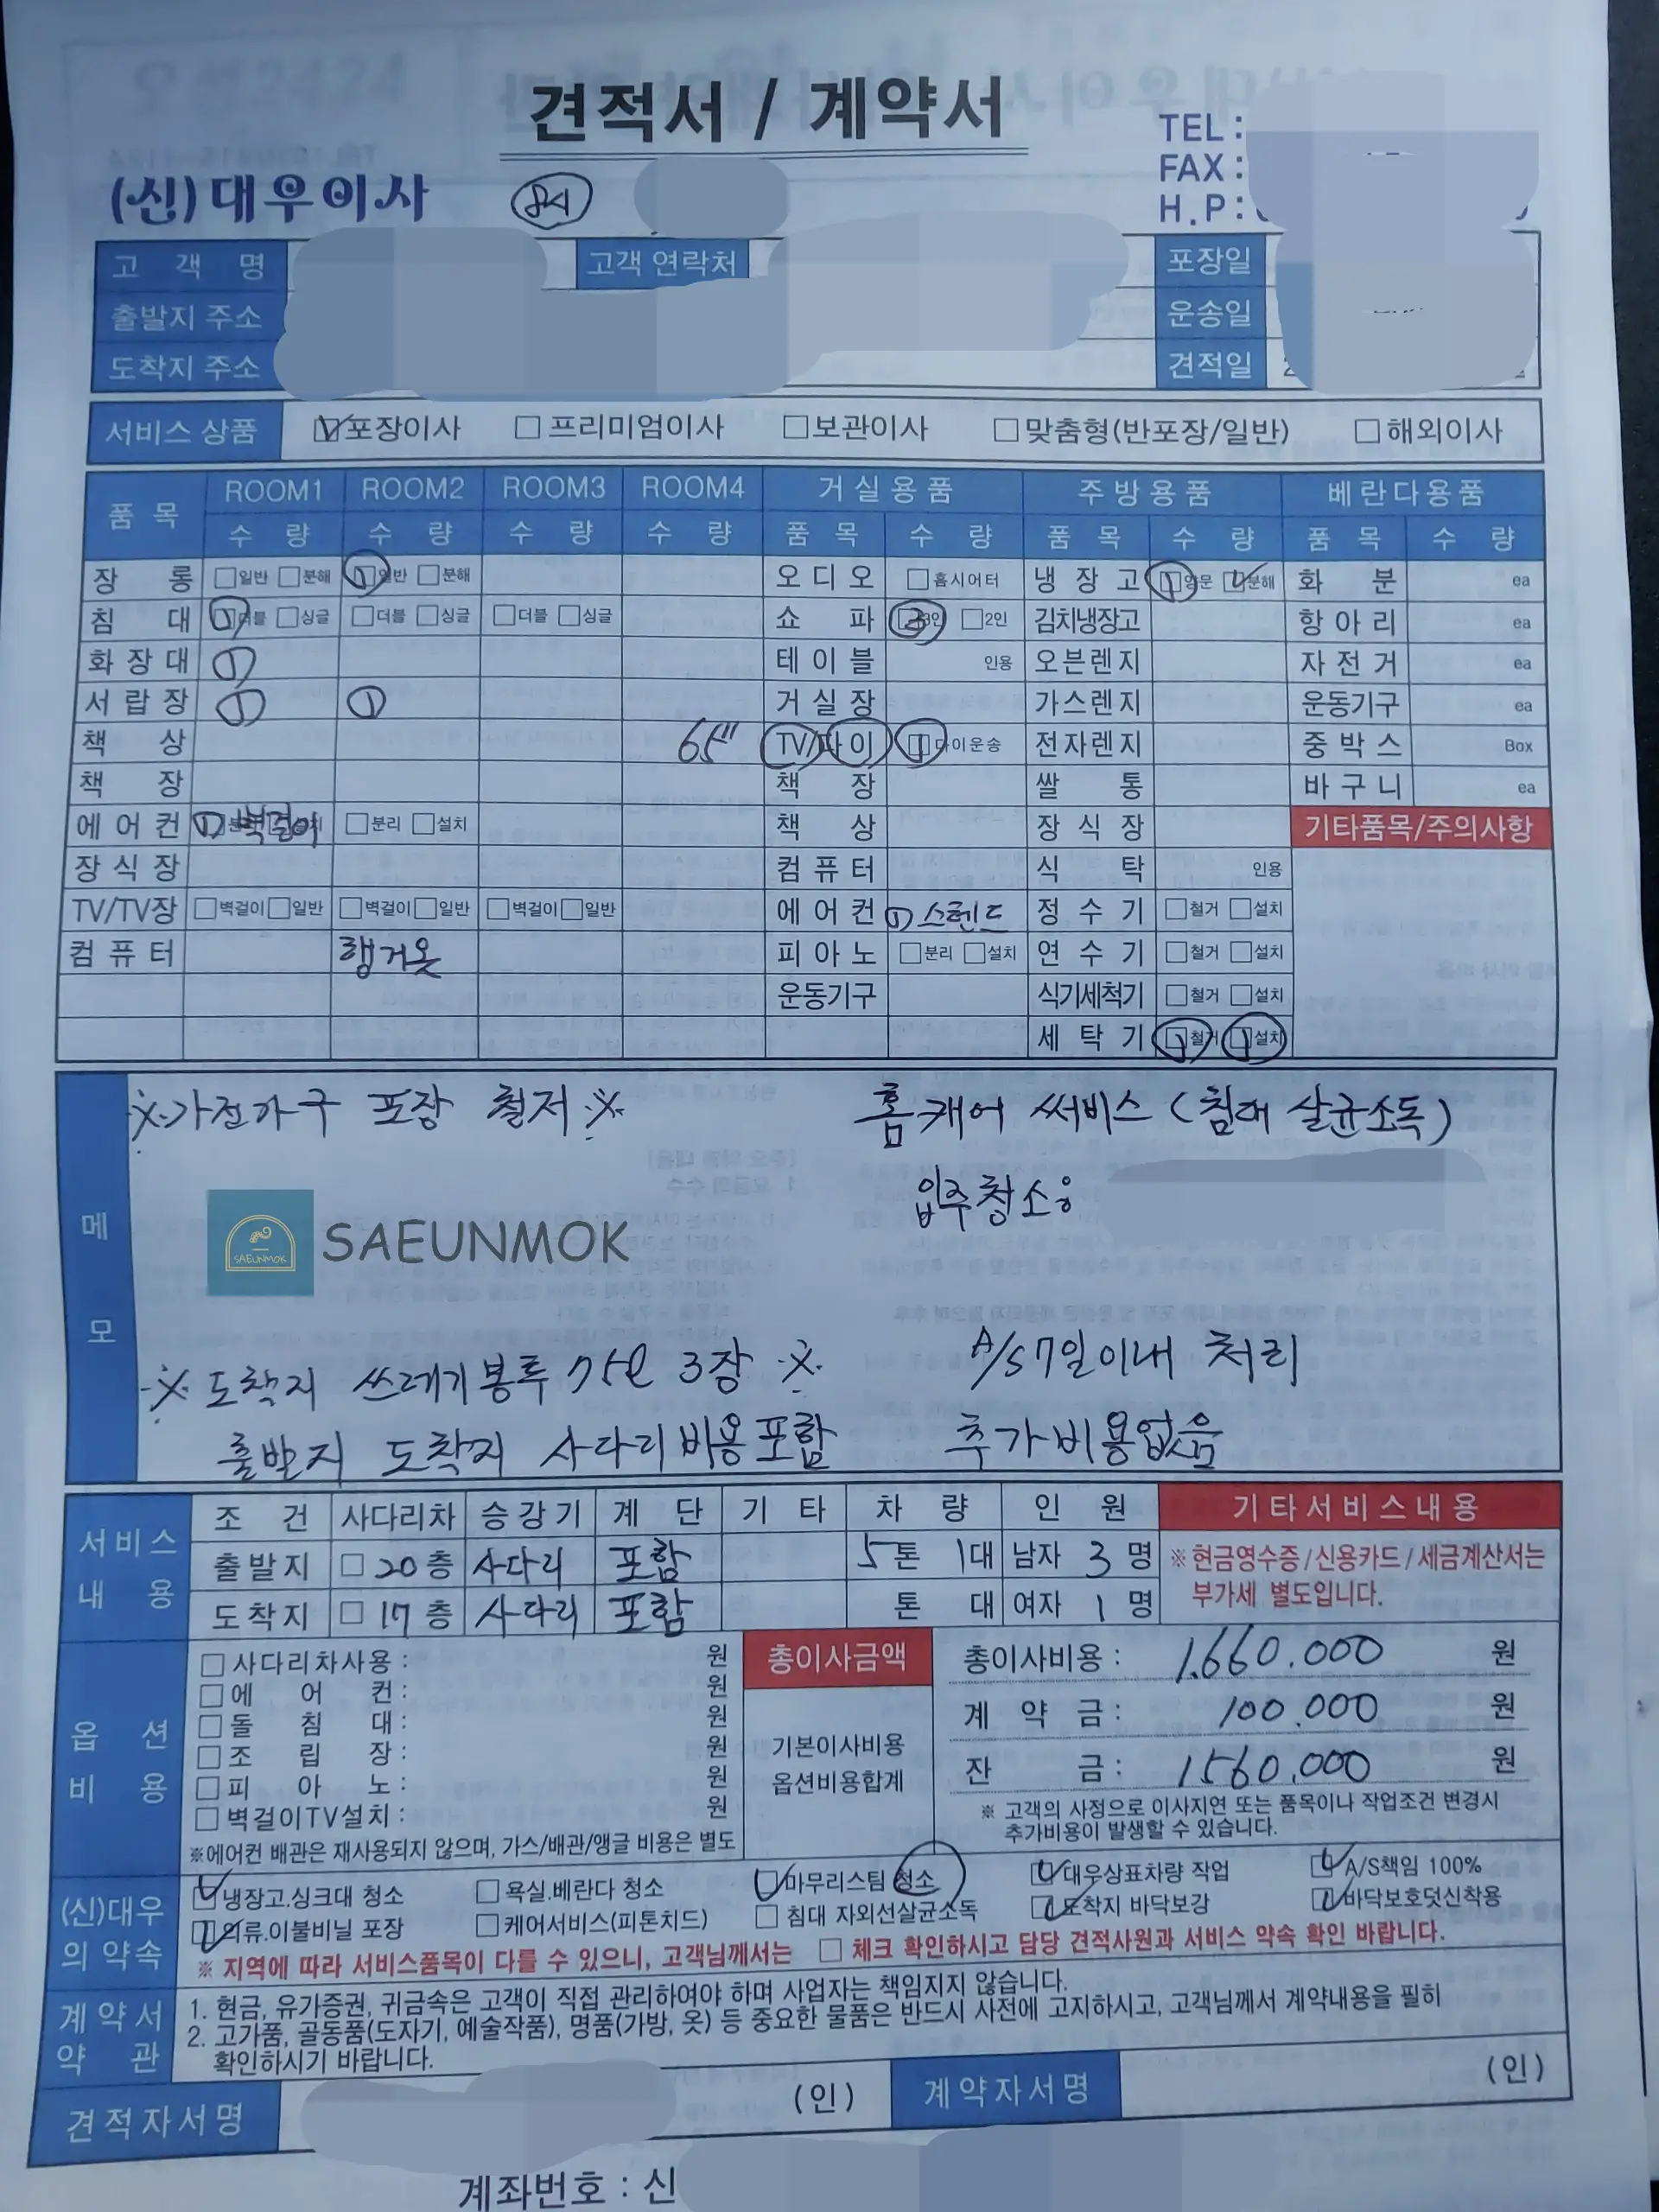 견적서 / 계약서
TEL :
FAX :
H.P :
(신)대우이사 8시
고객명 고객 연락처 포장일
출발지 주소 운송일
도착지 주소 견적일
서비스 상품 ☑포장이사 □프리미엄이사 □보관이사 □맞춤형(반포장/일반) □해외이사
품목 ROOM1 ROOM2 ROOM3 ROOM4 거실용품 주방용품 베란다용품
수량 수량 수량 수량 품목 수량 품목 수량 품목 수량
장롱 □일반 □분해 ① 일반 □분해 오디오 □홈시어터 냉장고 ① 양문 ☑분해 화분 ea
침대 ① 더블 □싱글 □더블 □싱글 □더블 □싱글 쇼파 ③ 3인 □2인 김치냉장고 항아리 ea
화장대 ① 테이블 인용 오븐렌지 자전거 ea
서랍장 ① ① 거실장 가스렌지 운동기구 ea
책상 65" TV/다이 ① 다이운송 전자렌지 중박스 Box
책장 책장 쌀통 바구니 ea
에어컨 ① 벽걸이 □분리 □설치 책상 장식장 기타품목/주의사항
장식장 컴퓨터 식탁 인용
TV/TV장 □벽걸이 □일반 □벽걸이 □일반 □벽걸이 □일반 에어컨 ① 스텐드 정수기 □철거 □설치
컴퓨터 행거옷 피아노 □분리 □설치 연수기 □철거 □설치
운동기구 식기세척기 □철거 □설치
세탁기 ① 철거 ① 설치
메모
※가전가구 포장 철저※ 홈캐어 써비스 (침대 살균소독)
입주청소:
SAEUNMOK
SAEUNMOK
※ 도착지 쓰레기봉투 75ℓ 3장 ※ A/S 7일이내 처리
출발지 도착지 사다리비용포함 추가비용없음
서비스 내용 조건 사다리차 승강기 계단 기타 차량 인원 기타서비스내용
출발지 □ 20층 사다리 포함 5톤 1대 남자 3명 ※현금영수증/신용카드/세금계산서는
도착지 □ 17층 사다리 포함 톤 대 여자 1명 부가세 별도입니다.
옵션 비용
□사다리차사용 : 원
□에어컨 : 원
□돌침대 : 원
□조립장 : 원
□피아노 : 원
□벽걸이TV설치 : 원
※에어컨 배관은 재사용되지 않으며, 가스/배관/앵글 비용은 별도
총이사금액
기본이사비용
옵션비용합계
총이사비용 : 1.660.000 원
계약금 : 100.000 원
잔금 : 1560.000 원
※ 고객의 사정으로 이사지연 또는 품목이나 작업조건 변경시
추가비용이 발생할 수 있습니다.
(신)대우의 약속
☑냉장고.싱크대 청소 □욕실.베란다 청소 ☑마무리스팀 청소 ☑대우상표차량 작업 ☑A/S책임 100%
☑의류.이불비닐 포장 □케어서비스(피톤치드) □침대 자외선살균소독 ☑도착지 바닥보강 ☑바닥보호덧신착용
※ 지역에 따라 서비스품목이 다를 수 있으니, 고객님께서는 □ 체크 확인하시고 담당 견적사원과 서비스 약속 확인 바랍니다.
계약서 약관
1. 현금, 유가증권, 귀금속은 고객이 직접 관리하여야 하며 사업자는 책임지지 않습니다.
2. 고가품, 골동품(도자기, 예술작품), 명품(가방, 옷) 등 중요한 물품은 반드시 사전에 고지하시고, 고객님께서 계약내용을 필히
확인하시기 바랍니다.
견적자서명 (인) 계약자서명 (인)
계좌번호 : 신